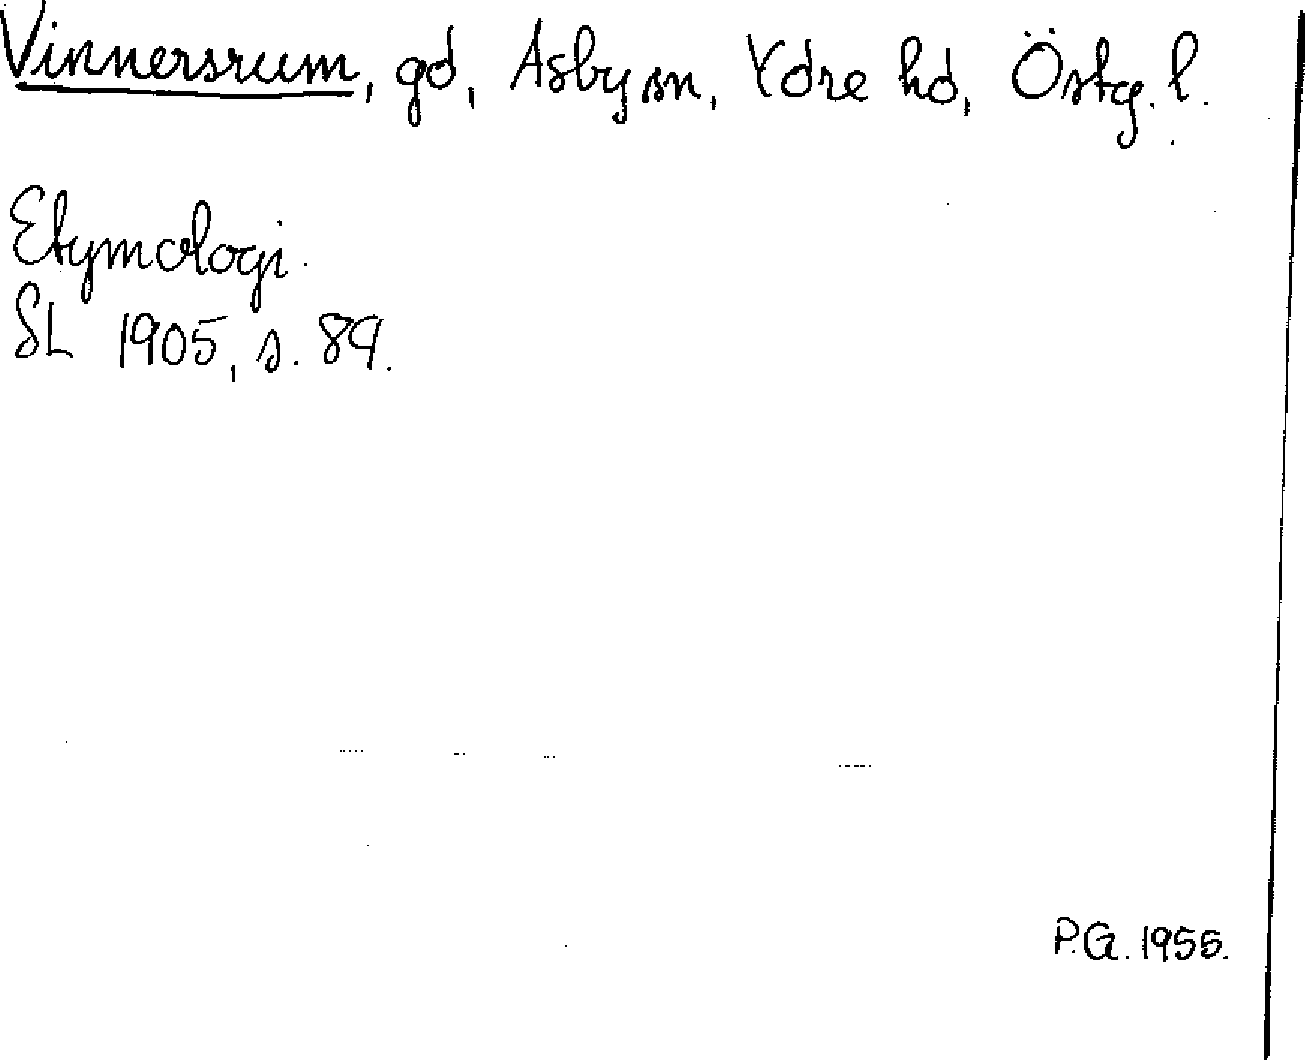 Vinnersrum, gd, Asby sn, Ydre hd, Östg. l.
Etymologi.
SL 1905, s. 89.
P.G. 1955.